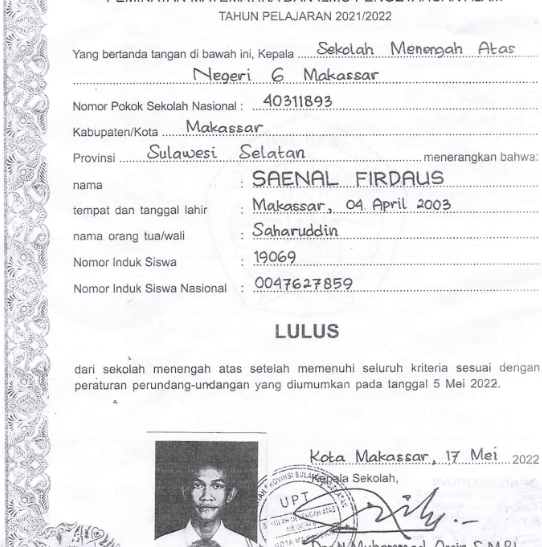 PEMINATAN MATEMATIKA DAN ILMU PENGETAHUAN ALAM
TAHUN PELAJARAN 2021/2022
Yang bertanda tangan di bawah ini, Kepala Sekolah Menengah Atas
Negeri 6 Makassar
Nomor Pokok Sekolah Nasional : 40311893
Kabupaten/Kota Makassar
Provinsi Sulawesi Selatan menerangkan bahwa:
nama : SAENAL FIRDAUS
tempat dan tanggal lahir : Makassar, 04 April 2003
nama orang tua/wali : Saharuddin
Nomor Induk Siswa : 19069
Nomor Induk Siswa Nasional : 0047627859
LULUS
dari sekolah menengah atas setelah memenuhi seluruh kriteria sesuai dengan
peraturan perundang-undangan yang diumumkan pada tanggal 5 Mei 2022.
Kota Makassar, 17 Mei 2022
Kepala Sekolah,
UPT
Muhammad